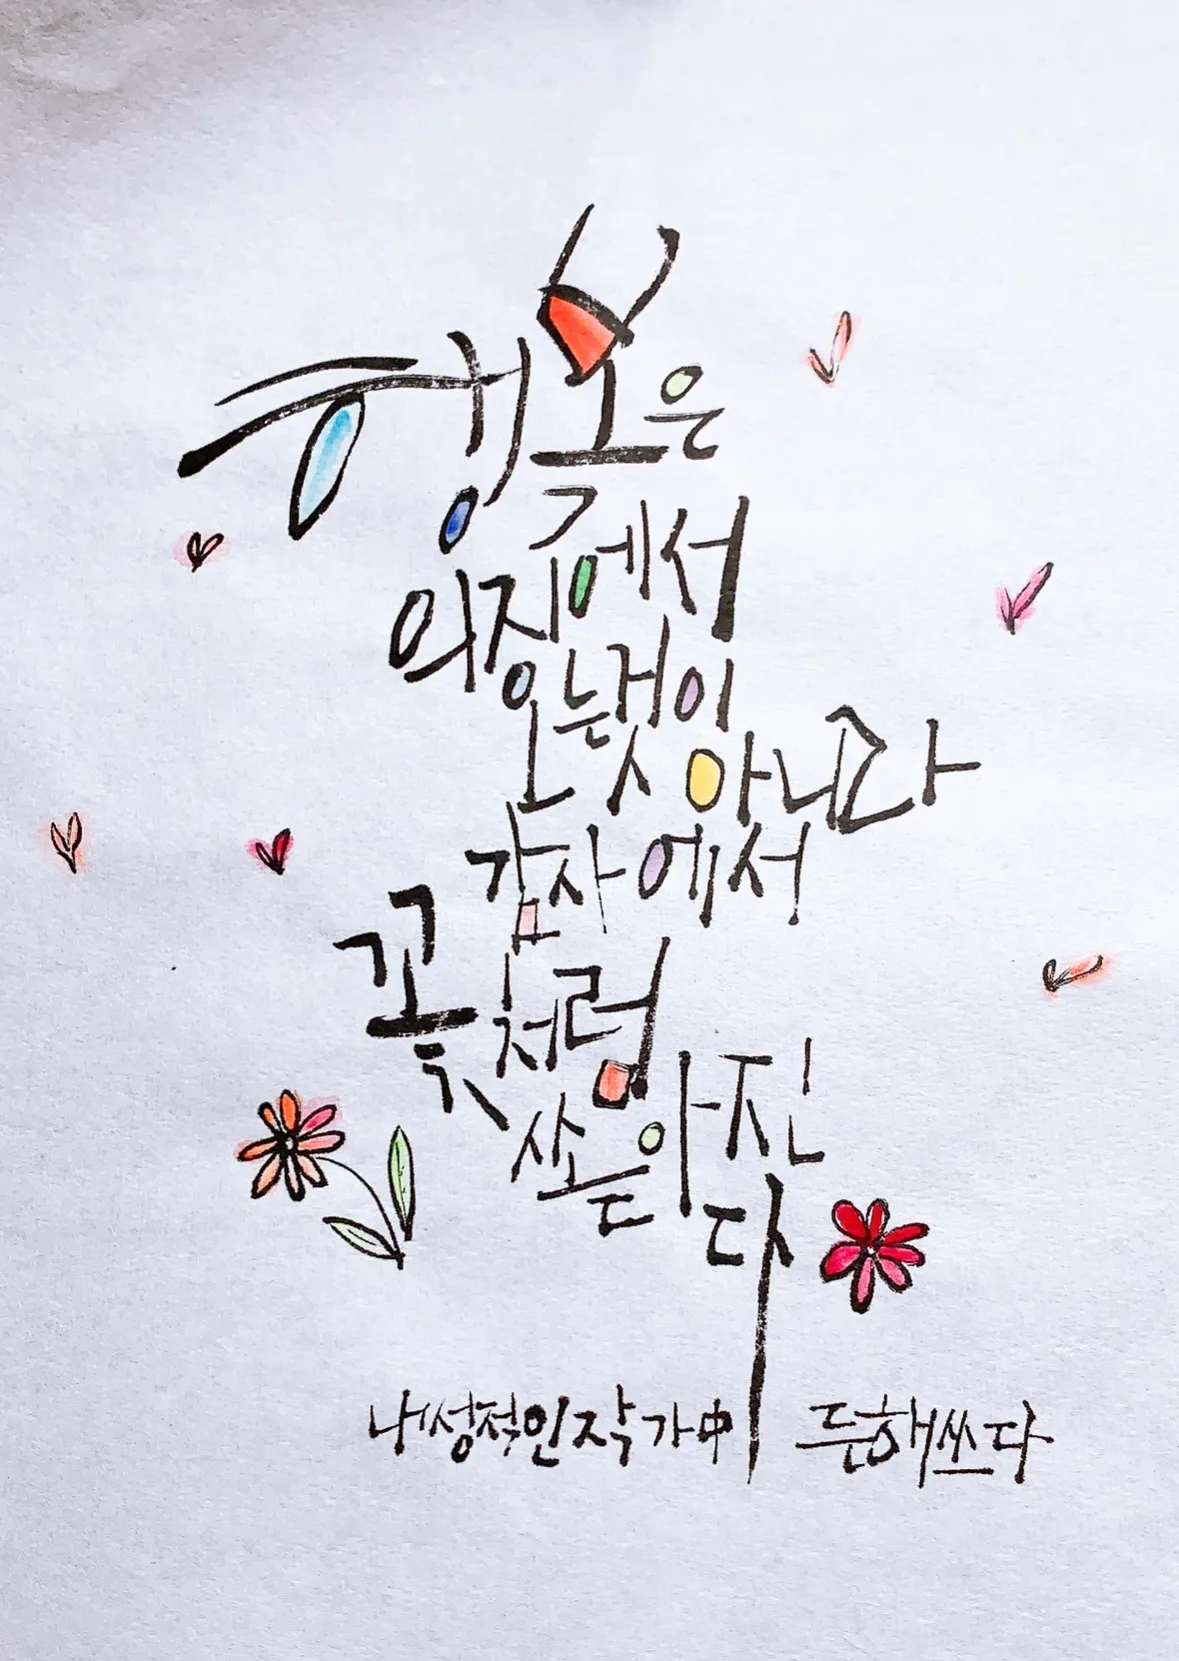 행복은
의지에서
오는것이
아니라
감사에서
꽃처럼
쏟아진
다
내성적인작가中 든해쓰다